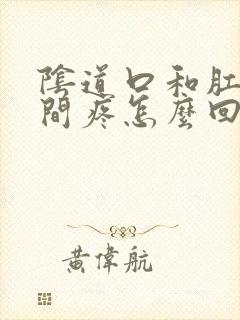 陰道口和肛
間疼怎麼回
黃偉航